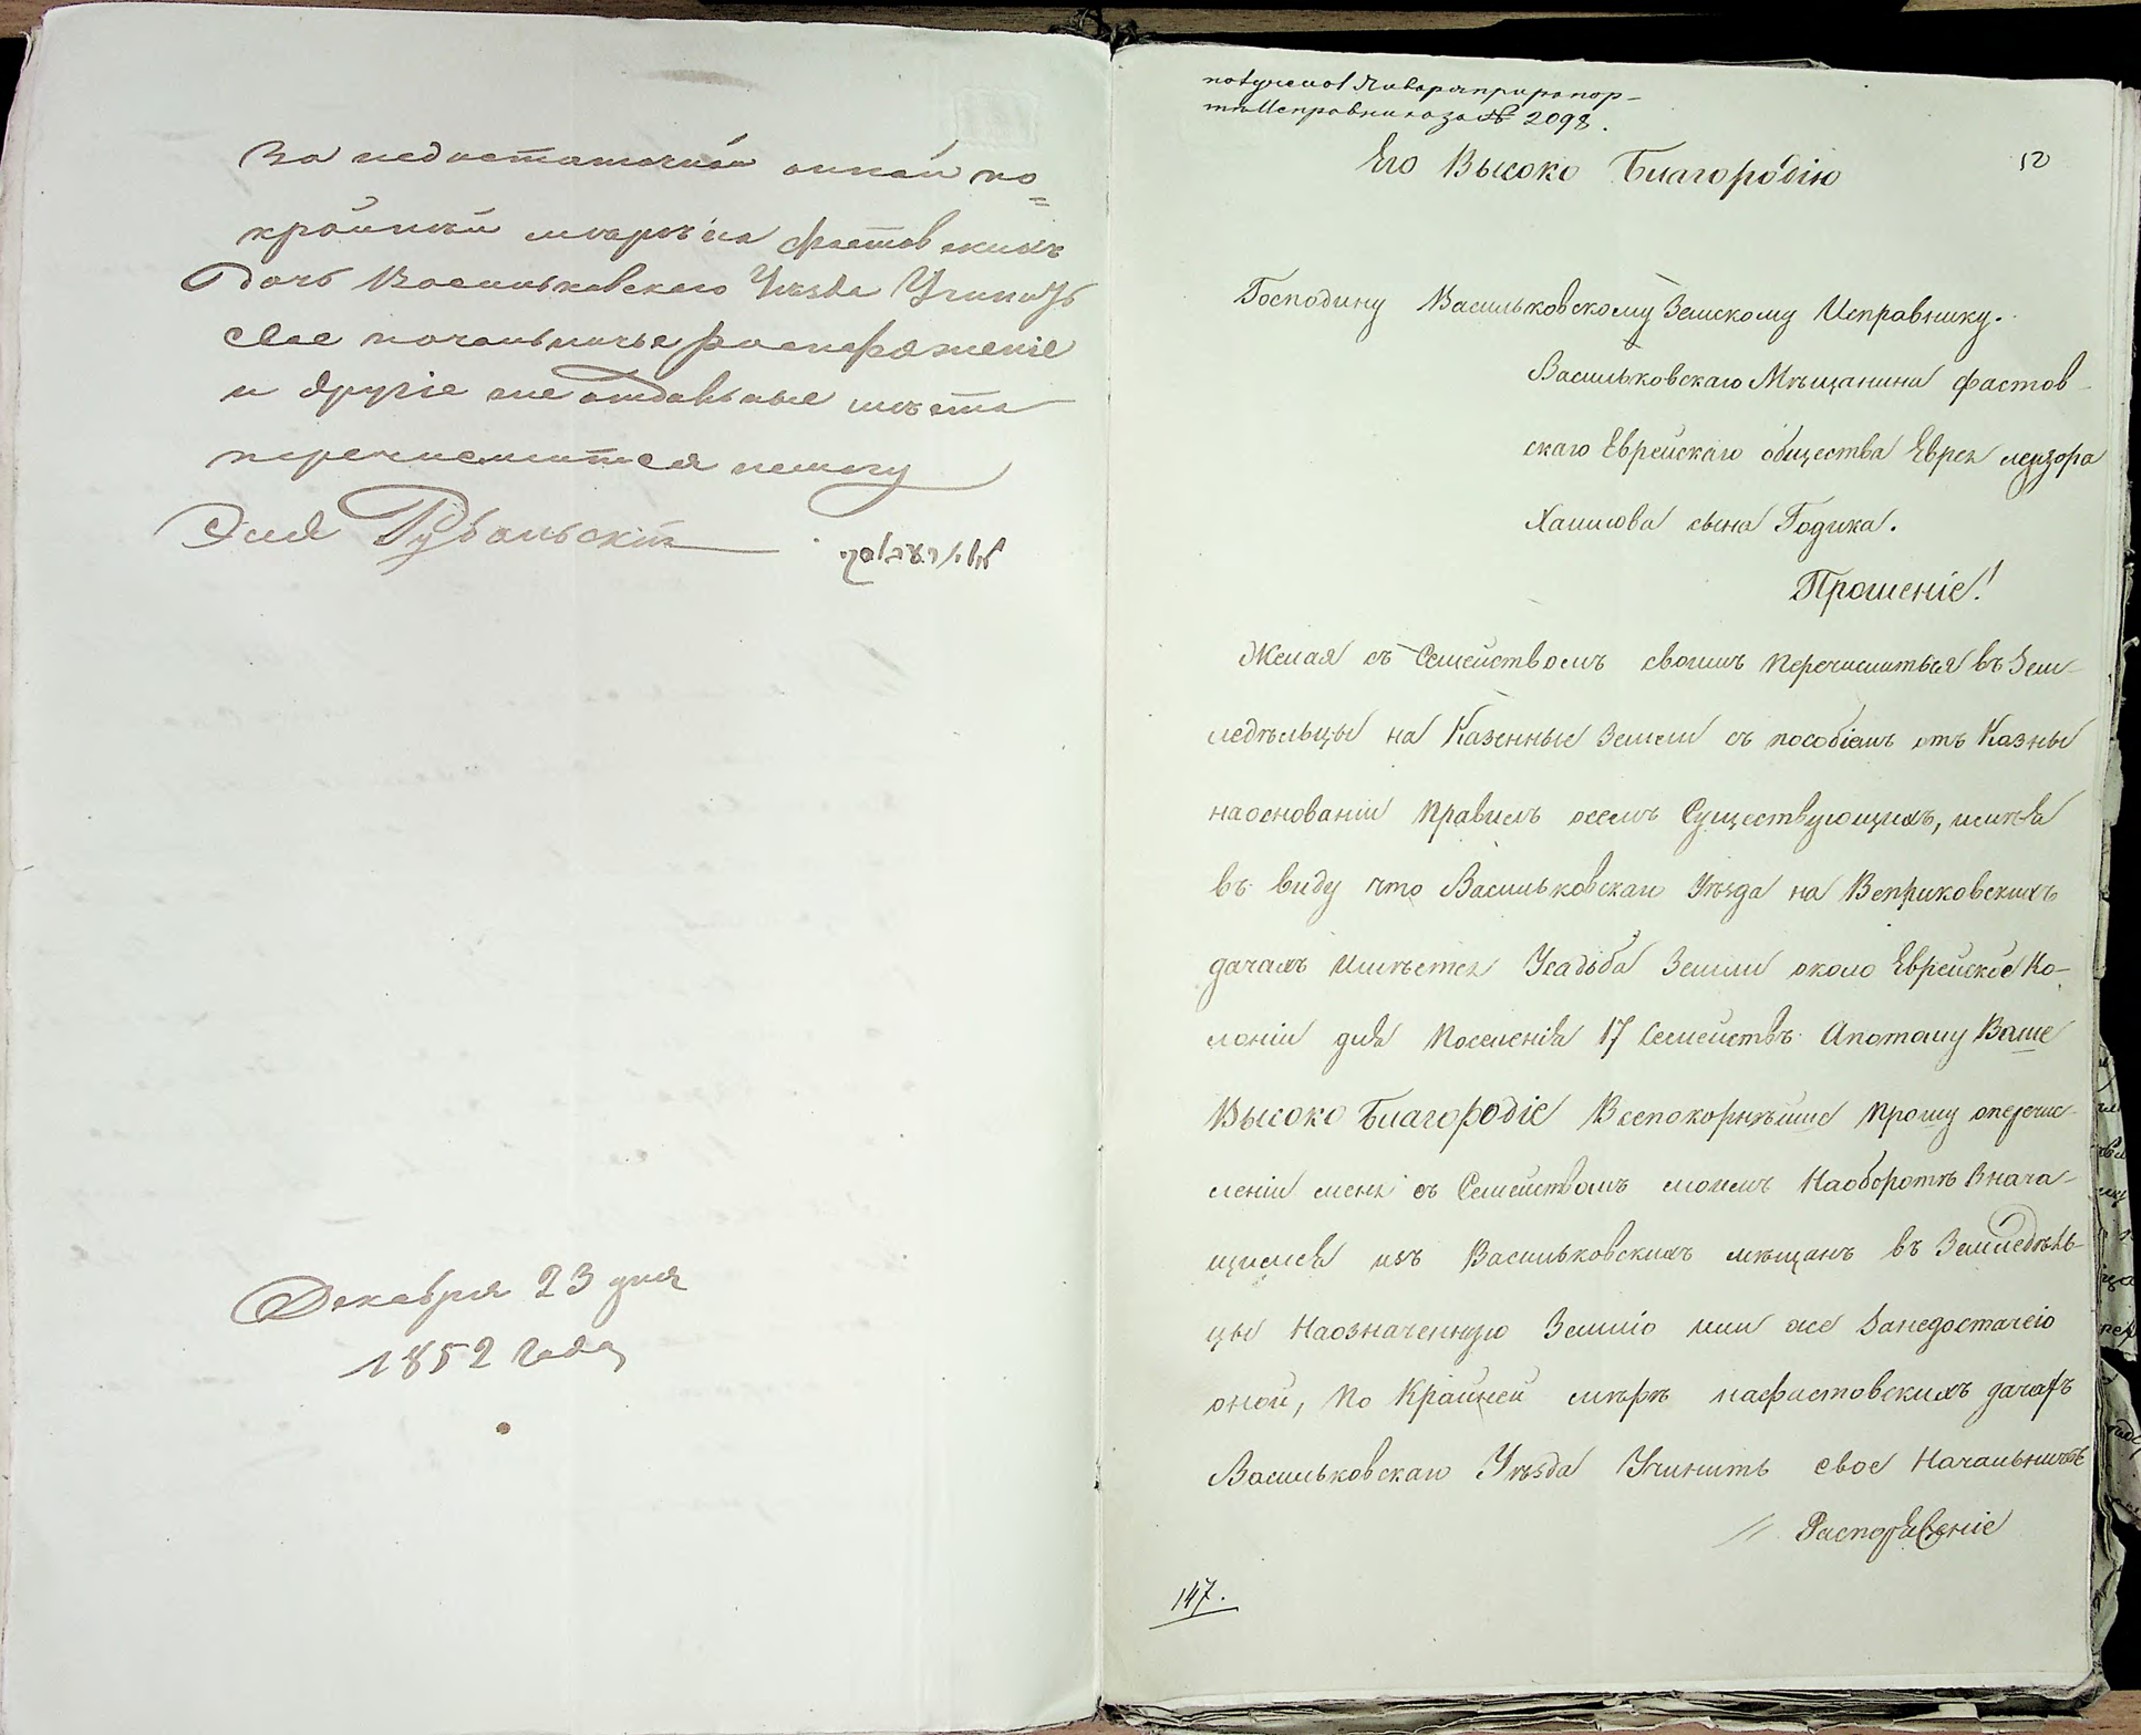 За недостаточной оиной по=
крайней мѣрѣ на фастовскихъ
дачъ Васильковскаго Уѣзда Учинить
свое начальничье распоряженіе
и другіе не отдальные мѣста
перечислится немогу
Эля Рубальскій
Декабря 23 дня
1852 Года
получено 1 Января при рапор-
тѣ Исправника за № 2098.
52
Его Высоко Благородію
Господину Васильковскому Земскому Исправнику.
Васильковскаго Мѣщанина фастов-
скаго Еврейскаго общества Еврея лейзора
Хаимова сына Годика.
Прошеніе!
Желая съ Семействомъ своимъ перечислиться въ Зем-
ледѣльцы на Казенные Земли съ пособіемъ отъ Казны
наоснованіи правилъ осемъ Существующихъ, имѣя
въ виду что Васильковскаго Уѣзда на Веприковскихъ
дачахъ имѣется Усадьба Земли около Еврейское Ко-
лоніи для Поселенія 17 Семействъ. Апотому Ваше
Высоко Благородіе Всепокорнѣйше прошу оперечис-
леніи меня съ Семействомъ моимъ Наоборотѣ Знача-
щимся изъ Васильковскихъ мѣщанъ въ Земледѣль-
цы Наозначенную Землю или же Занедостачею
оной, по Крайней мѣрѣ нафастовскихъ дачахъ
Васильковскаго Уѣзда Учинить свое Начальничье
// Распоряженіе
147.